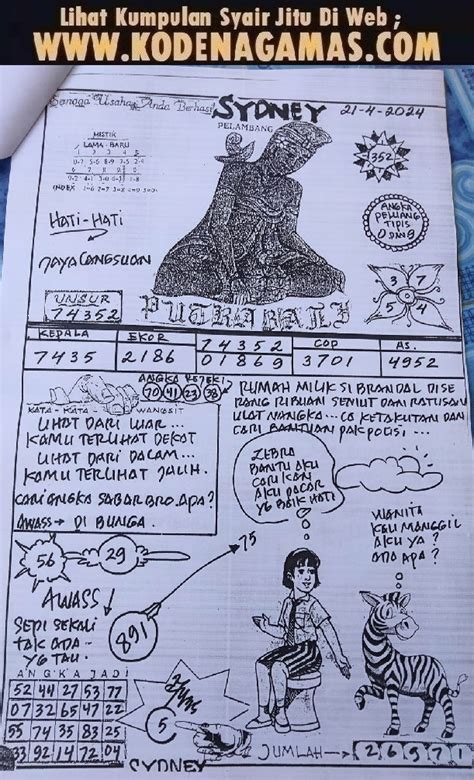 Lihat Kumpulan Syair Jitu Di Web ;
WWW.KODENAGAMAS.COM
Semoga Usaha Anda Berhasil
SYDNEY
21-4-2024
PELAMBANG
MISTIK
LAMA - BARU
352
HATI-HATI
ANGKA
PELUANG
TIPIS
3 7
5 4
UNSUR
74352
PUTRA BALI
KEPALA
7435
EKOR
2186
74352
01869
COP
3701
AS.
4952
ANGKA REJEKI
70 41 23 38
KATA - KATA - WANGSIT
LIHAT DARI LUAR...
KAMU TERLIHAT DEKAT
LIHAT DARI DALAM...
KAMU TERLIHAT JAUH.
CARI ANGKA SABAR BRO. APA?
AWASS → DI BUNGA.
RUMAH MILIK SI BRANDAL DISE
RANG RIBUAN SEMUT DAN RATUSAN
ULAT NANGKA... CO KETAKUTAN DAN
CARI BANTUAN PAK POLISI...
ZEBRA
BANTU AKU
CARI KAN
AKU PACAR
YG BAIK HATI
WANITA
KAU MANGGIL
AKU YA?
ADA APA?
56
29
75
AWASS
SEPI SEKALI
TAK ADA
YG TAU.
891
ANGKA JADI
52 44 27 53 77
07 32 65 47 22
55 74 35 83 25
33 92 14 72 04
5
SYDNEY
JUMLAH → 26971